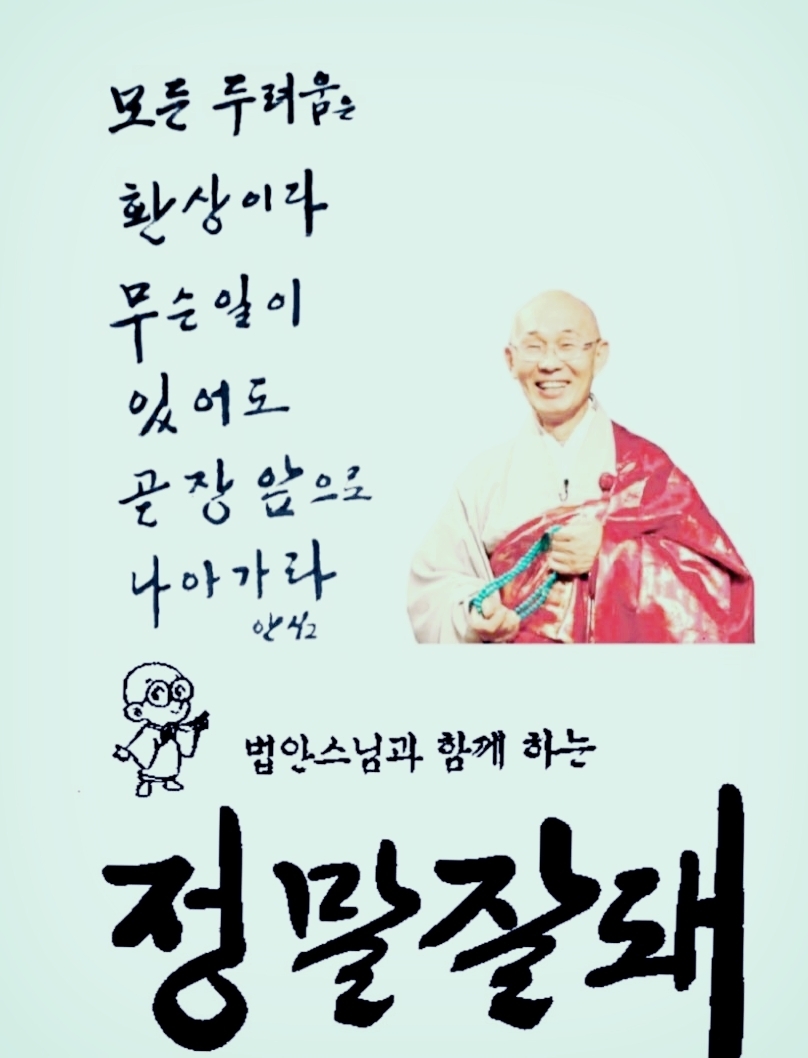 모든 두려움은
환상이다
무슨일이
있어도
곧장 앞으로
나아가라
법안스님과 함께 하는
정말잘돼